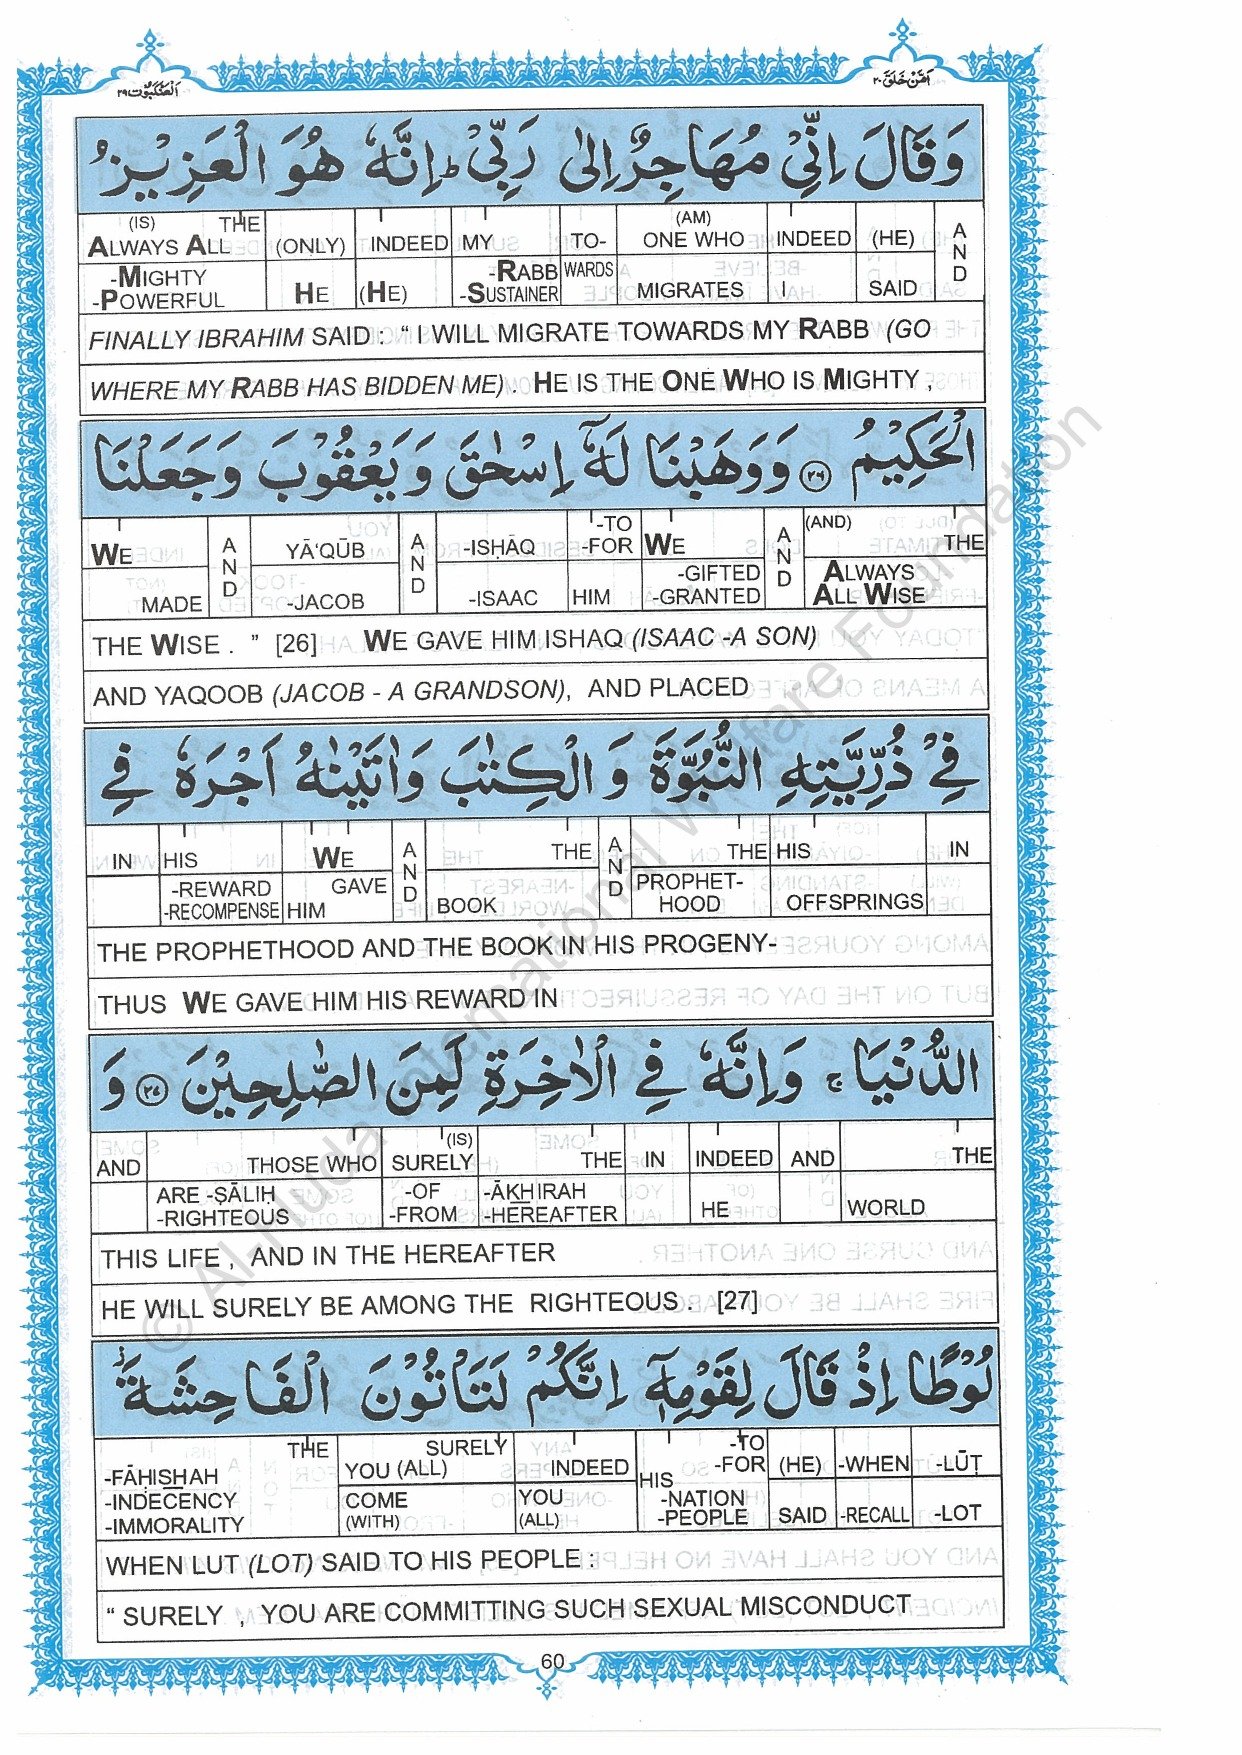 العنكبوت ٢٩
امن خلق ٢٠
وَقَالَ اِنِّیْ مُهَاجِرٌ اِلٰی رَبِّیْ ؕ اِنَّهٗ هُوَ الْعَزِیْزُ
(IS) THE ALWAYS ALL (ONLY) INDEED MY TO- (AM) ONE WHO INDEED (HE) AND
-MIGHTY -POWERFUL HE (HE) -RABB -SUSTAINER WARDS MIGRATES I SAID
FINALLY IBRAHIM SAID : “ I WILL MIGRATE TOWARDS MY RABB (GO
WHERE MY RABB HAS BIDDEN ME) . HE IS THE ONE WHO IS MIGHTY ,
الْحَكِیْمُ ﴿۲۶﴾ وَوَهَبْنَا لَهٗۤ اِسْحٰقَ وَیَعْقُوْبَ وَجَعَلْنَا
WE AND YĀ‘QŪB AND -ISḤĀQ -TO -FOR WE AND (AND) THE
MADE -JACOB -ISAAC HIM -GIFTED -GRANTED ALWAYS ALL WISE
THE WISE . ” [26] WE GAVE HIM ISHAQ (ISAAC -A SON)
AND YAQOOB (JACOB - A GRANDSON), AND PLACED
فِیْ ذُرِّیَّتِهِ النُّبُوَّةَ وَ الْكِتٰبَ وَاٰتَیْنٰهُ اَجْرَهٗ فِی
IN HIS WE AND THE AND THE HIS IN
-REWARD -RECOMPENSE GAVE HIM BOOK PROPHET- HOOD OFFSPRINGS
THE PROPHETHOOD AND THE BOOK IN HIS PROGENY-
THUS WE GAVE HIM HIS REWARD IN
الدُّنْیَا ۚ وَاِنَّهٗ فِی الْاٰخِرَةِ لَمِنَ الصّٰلِحِیْنَ ﴿۲۷﴾ وَ
AND THOSE WHO (IS) SURELY THE IN INDEED AND THE
ARE -ṢĀLIḤ -RIGHTEOUS -OF -FROM -ĀKHIRAH -HEREAFTER HE WORLD
THIS LIFE , AND IN THE HEREAFTER
HE WILL SURELY BE AMONG THE RIGHTEOUS . [27]
لُوْطًا اِذْ قَالَ لِقَوْمِهٖۤ اِنَّكُمْ لَتَاْتُوْنَ الْفَاحِشَةَ ؗ
THE -FĀḤISHAH SURELY YOU (ALL) INDEED HIS -TO -FOR (HE) -WHEN -LŪṬ
-INDECENCY -IMMORALITY COME (WITH) YOU (ALL) -NATION -PEOPLE SAID -RECALL -LOT
WHEN LUT (LOT) SAID TO HIS PEOPLE :
“ SURELY , YOU ARE COMMITTING SUCH SEXUAL MISCONDUCT
60
© Al-Huda International Welfare Foundation